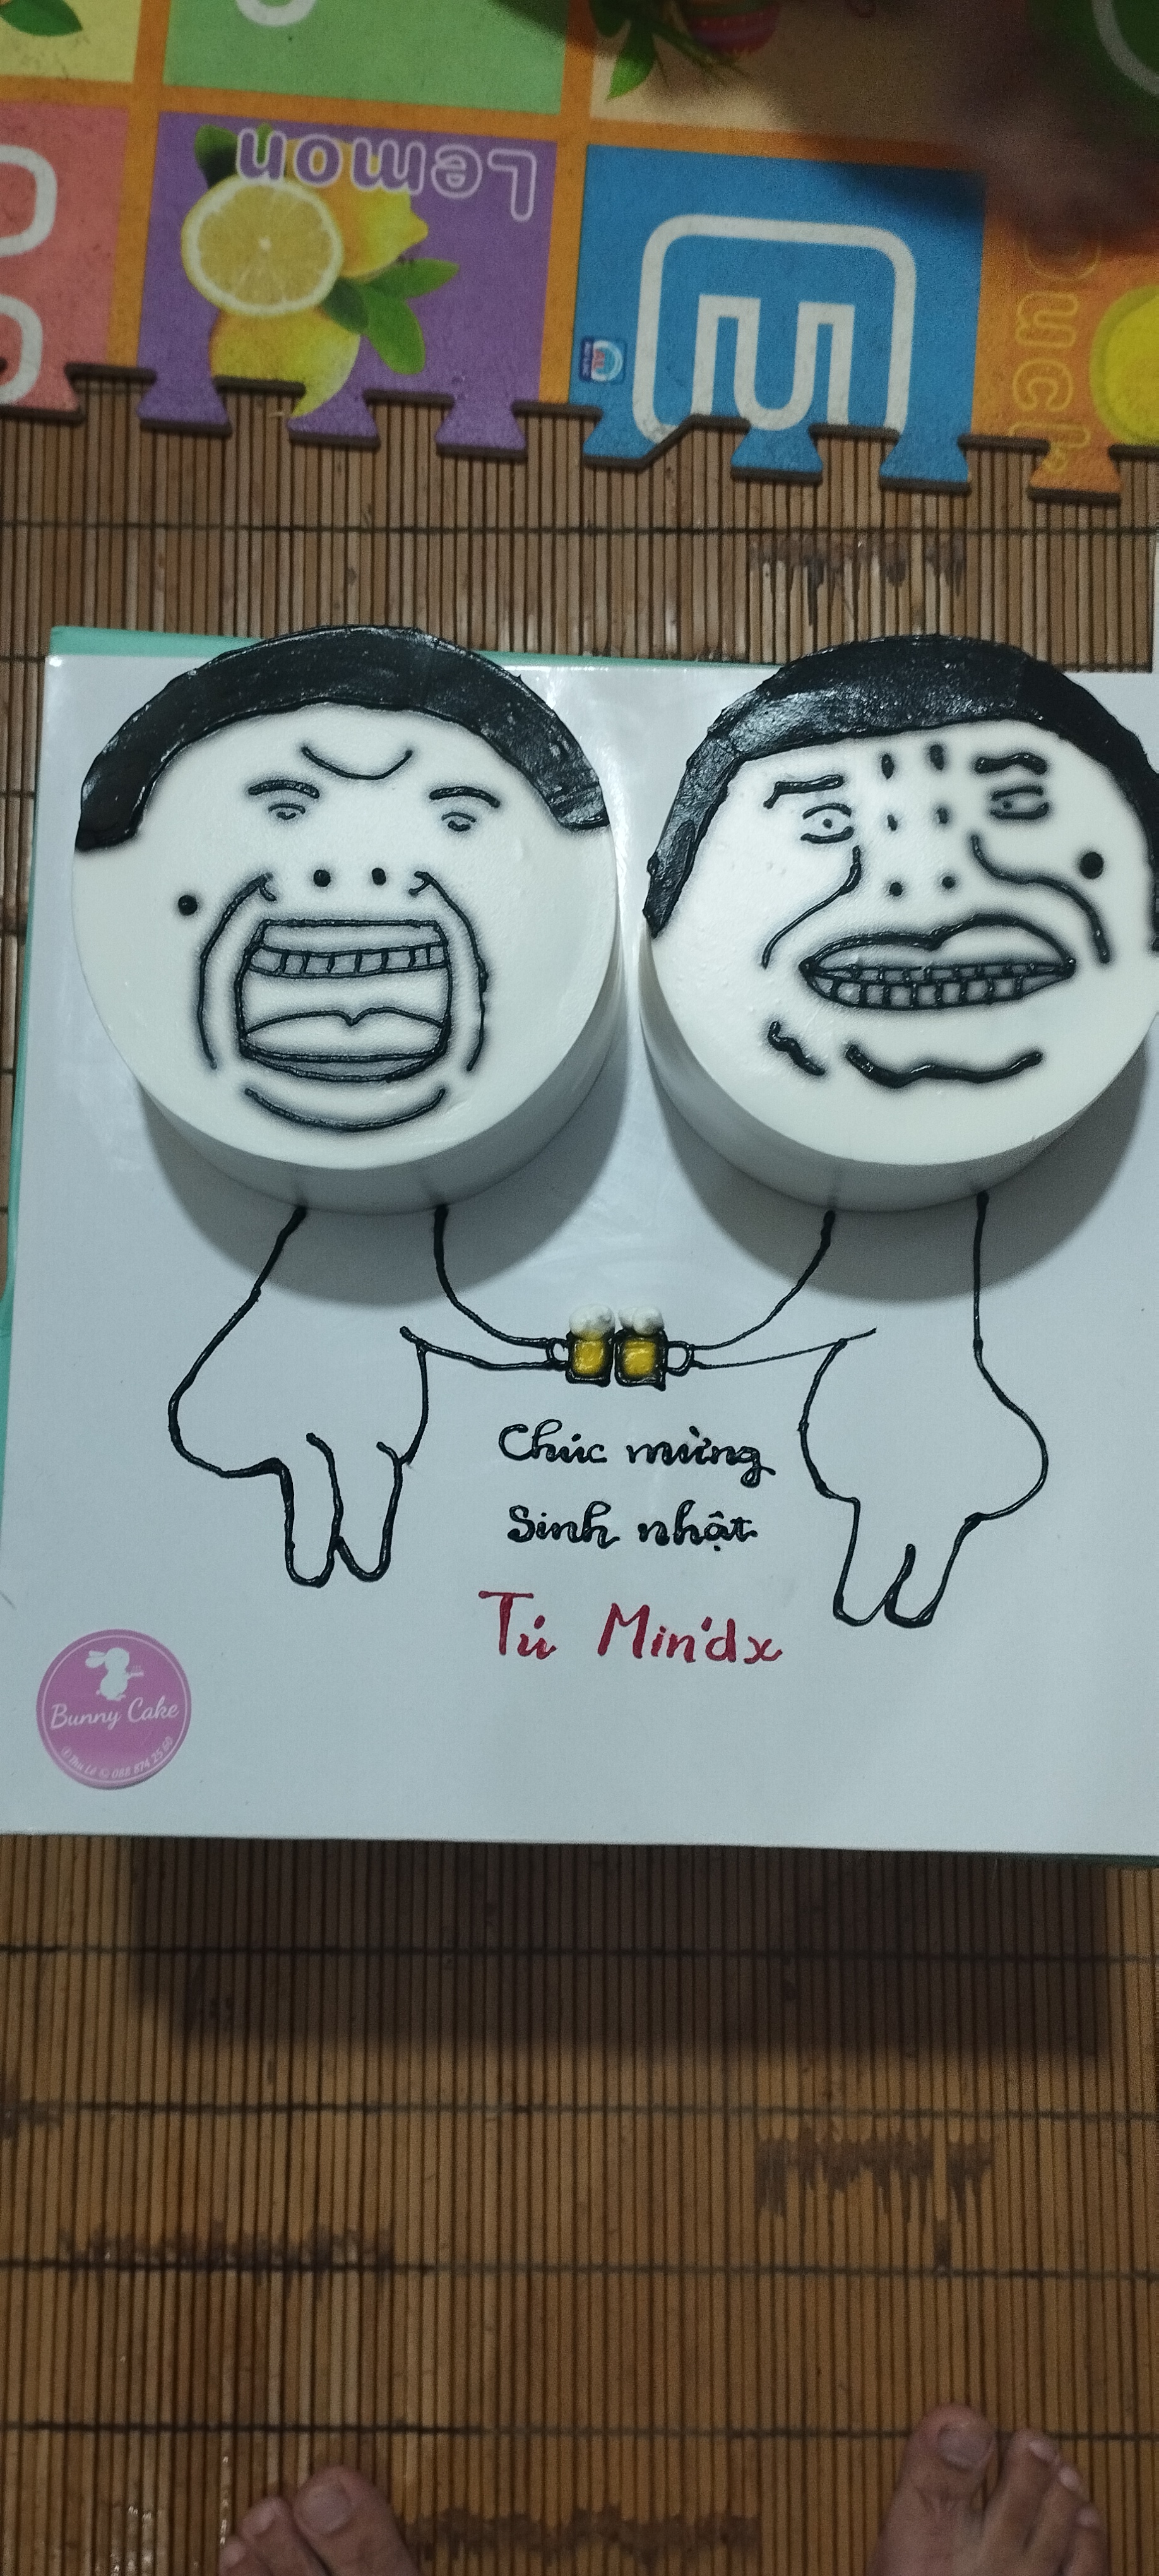 Lemon
Chúc mừng
Sinh nhật
Tú Min'dx
Bunny Cake
Thu Lê 088 874 25 60